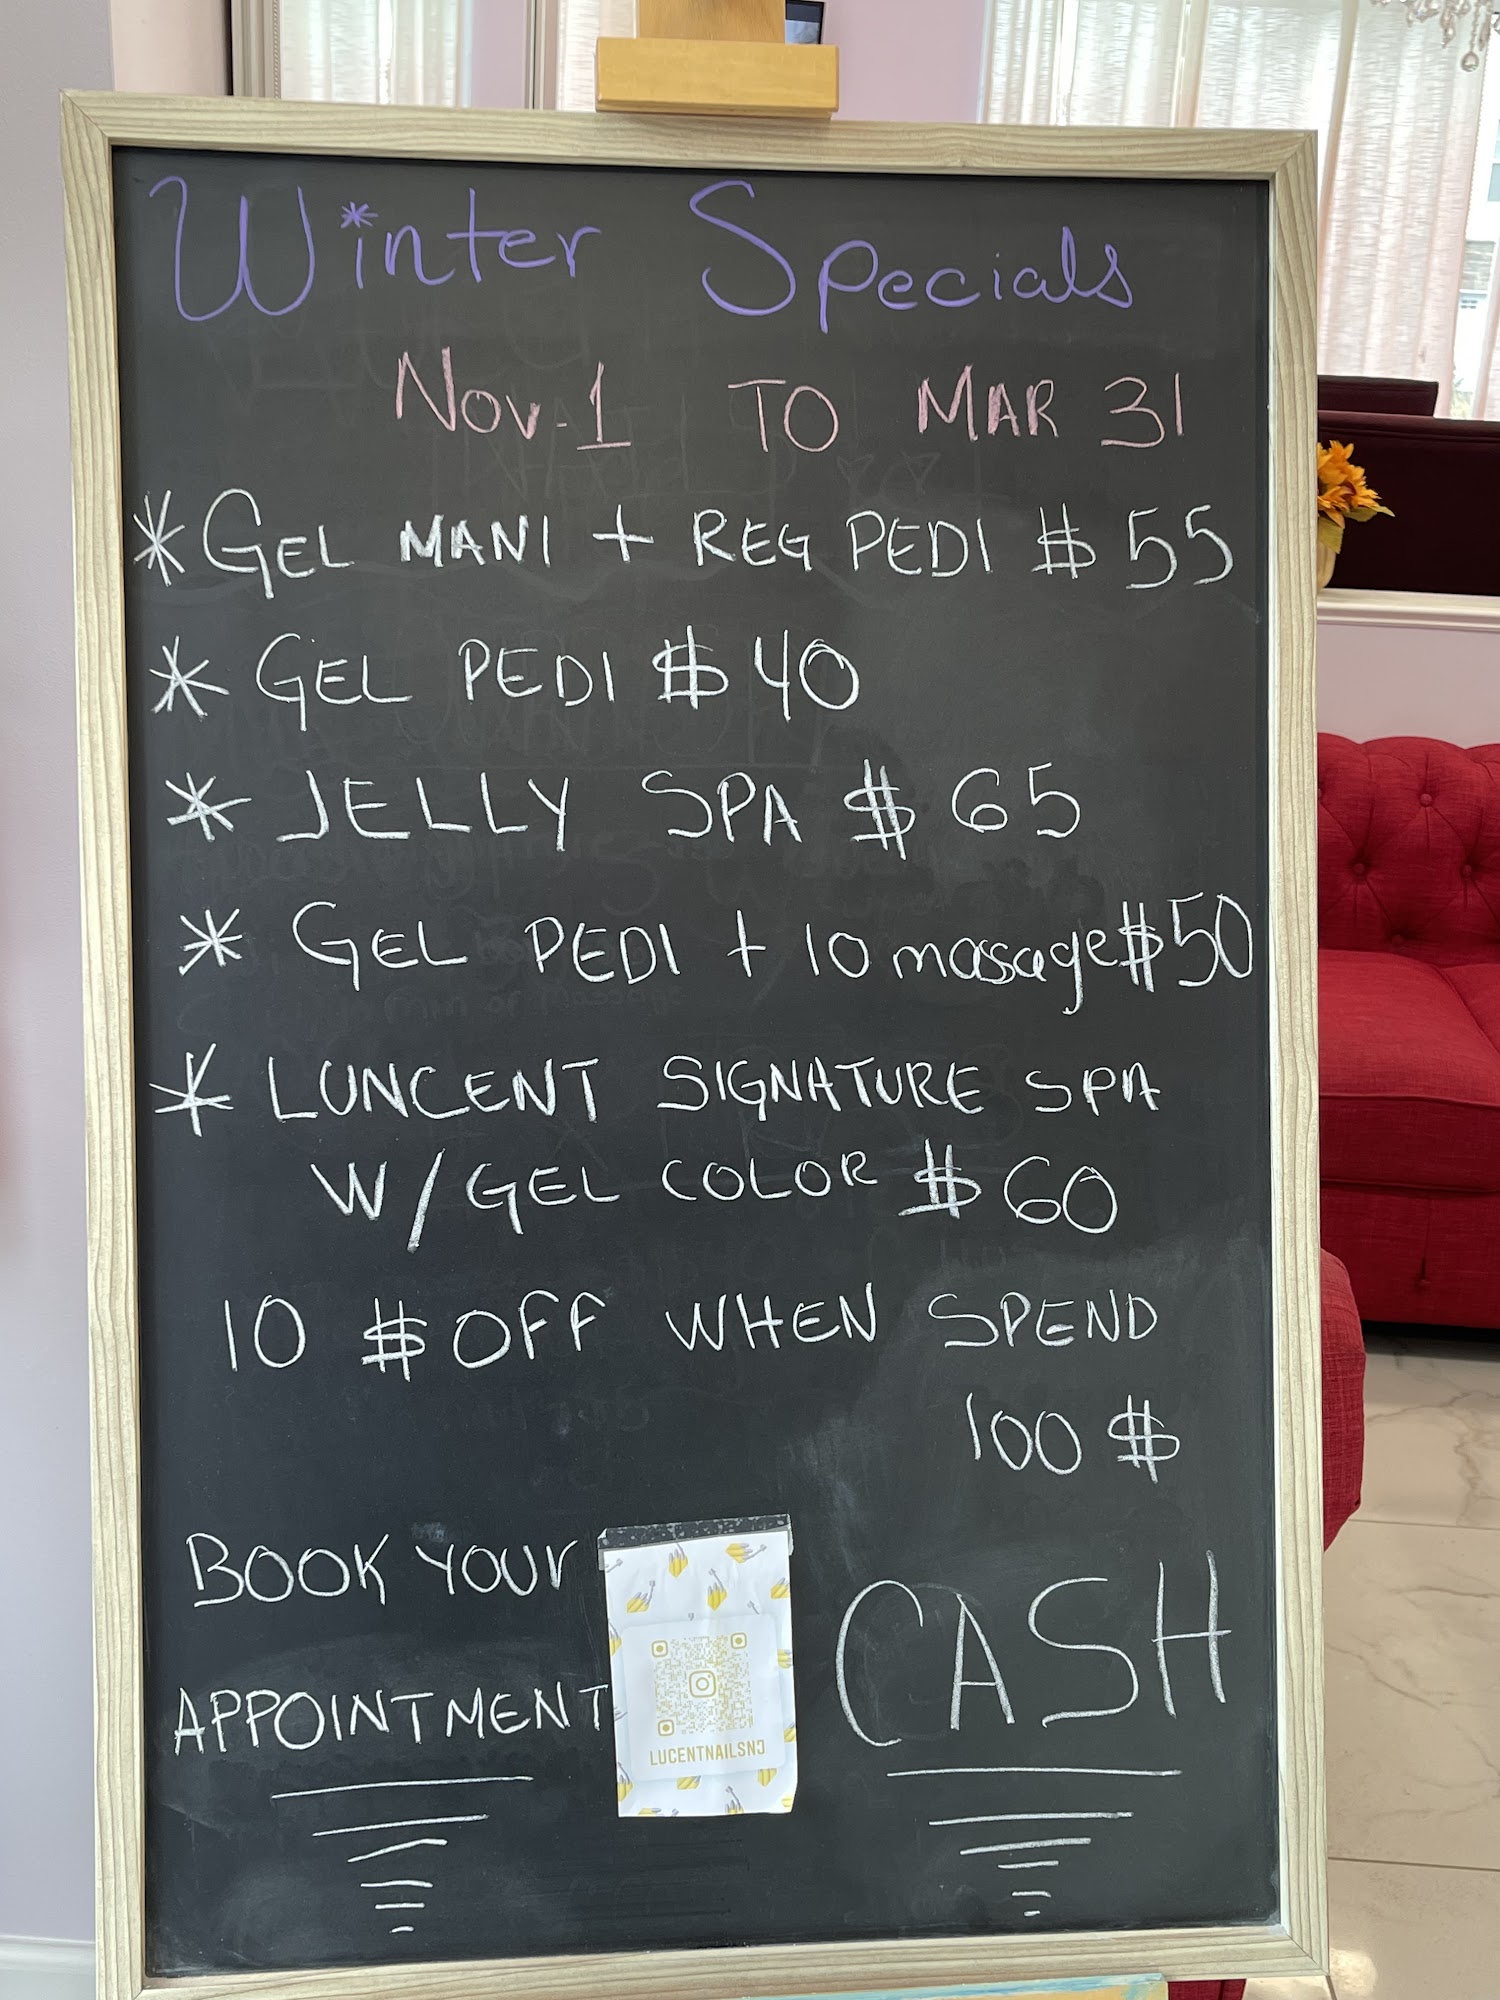 Winter Specials
Nov-1 TO MAR 31
* GEL MANI + REG PEDI $ 55
* GEL PEDI $ 40
* JELLY SPA $ 65
* GEL PEDI + 10 massage $50
* LUNCENT SIGNATURE SPA
W/GEL COLOR $ 60
10 $ OFF WHEN SPEND
100 $
BOOK YOUR
APPOINTMENT
LUCENTNAILSNJ
CASH